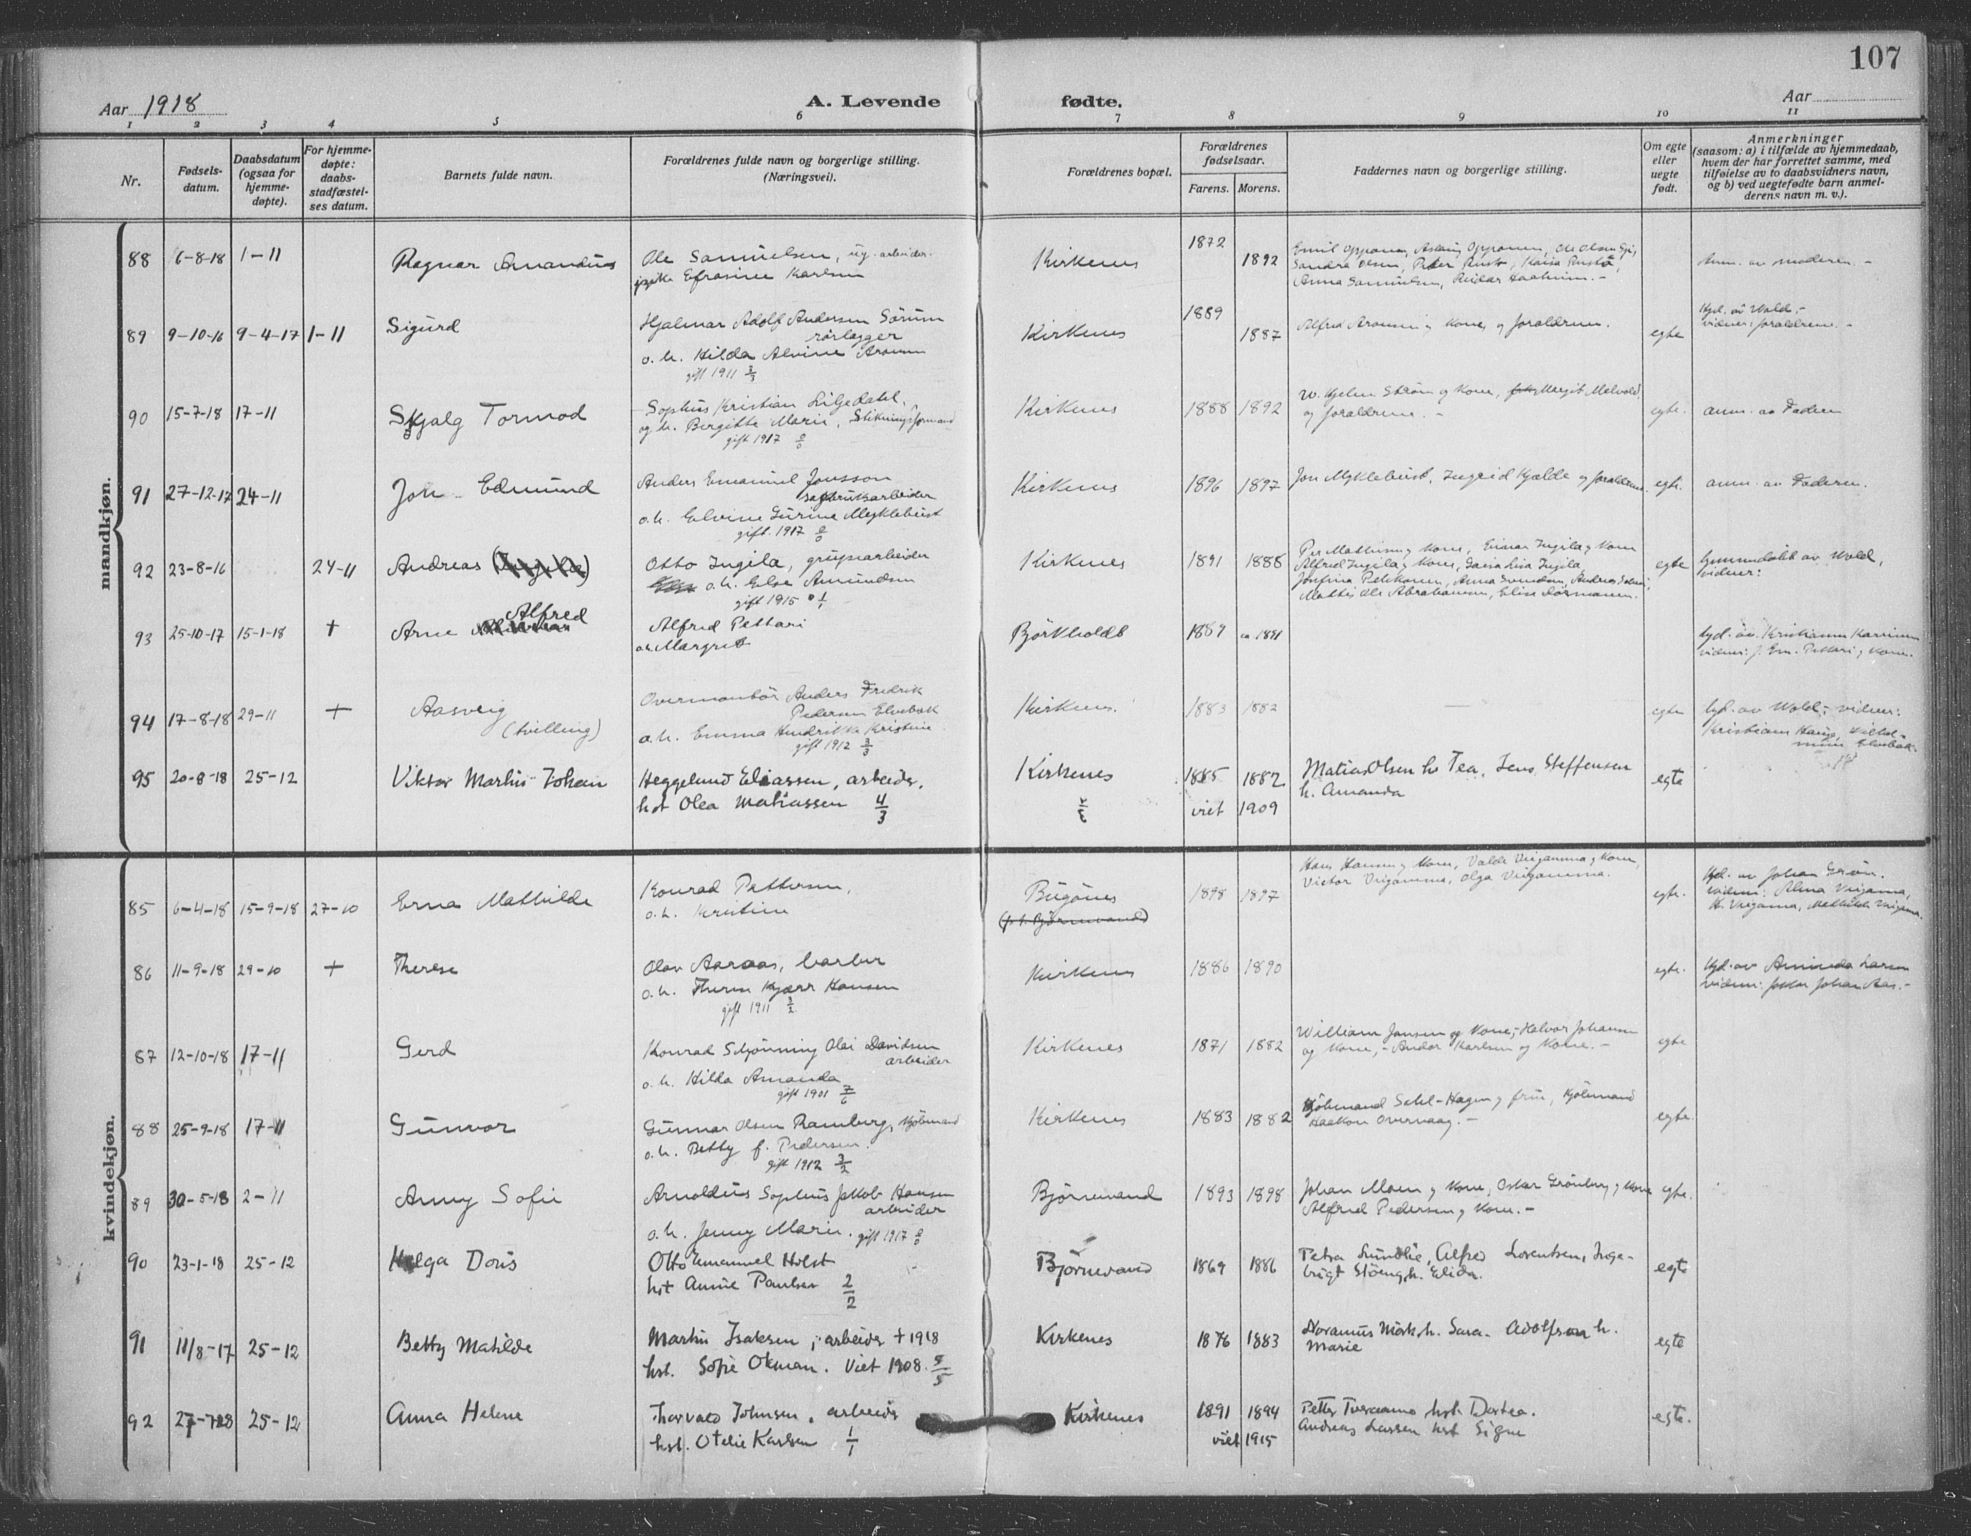 107
Aar 1918
A. Levende fødte.
Aar
1 2 3 4 5 6 7 8 9 10 11
Nr.
Fødsels-
datum.
Daabsdatum
(ogsaa for
hjemme-
døpte).
For hjemme-
døpte:
daabs-
stadfæstel-
ses datum.
Barnets fulde navn.
Forældrenes fulde navn og borgerlige stilling.
(Næringsvei).
Forældrenes bopæl.
Forældrenes
fødselsaar.
Farens. Morens.
Faddernes navn og borgerlige stilling.
Om egte
eller
uegte
født.
Anmerkninger
(saasom: a) i tilfælde av hjemmedaab,
hvem der har forrettet samme, med
tilføielse av to daabsvidners navn,
og b) ved uegtefødte barn anmel-
derens navn m. v.).
mandkjøn.
88 6-8-18 1-11 Ragnar Amandus
Ole Samuelsen, ug. arbeider.
pike Efrosine Karlsen
Kirkenes 1872 1892
Anna Samuelsen,
anm. av moderen. -
89 9-10-16 9-4-17 1-11 Sigurd
Hjalmar Adolf Andersen Sörum
rörlegger
o. h. Hilda Alvine Aronsen
gift 1911 3/3
Kirkenes 1889 1887
Alfred Aronsen og Kone, og forældrene.
egte
Hjd. av Wold.-
vidner: forældrene. -
90 15-7-18 17-11 Skjalg Tormod
Sophus Kristian Liljedahl,
og h. Birgitte Marie, Stikningsformand
gift 1917 0/0
Kirkenes 1888 1892
W. Hjelm Ström og Kone, Margit Melvold,
og forældrene. -
egte. anm. av Faderen
91 27-12-17 24-11 Jon Edmund
Anders Emanuel Jonsson
o. h. Elvine Gurine Myklebust
gift. 1917 0/0
Kirkenes 1896 1897
Jon Myklebust, Ingrid Kjelde og forældrene.
egte. anm. av Faderen.
92 23-8-16 24-11 Andreas
Otto Ingila, grubearbeider
o. h. Else Amundsen
gift 1915 1/1
Kirkenes 1891 1888
Per Mathisen og Kone, Einar Ingila og Kone
Alfred Ingila og Kone,
egte
hjemmedöbt av Wold,
vidner:
93 25-10-17 15-1-18 + Arne Alfred
Alfred Pettari
o. h. Margret
Björkholdt 1889 ca 1891
94 17-8-18 29-11 + Aasveig
(tvilling)
Overmontör Anders Fredrik
Pedersen Elvebak
o. h. Emma Hendrikka Kristine
gift 1912 3/3
Kirkenes. 1883 1882 egte
hjd. av Wold; vidner:
95 20-8-18 25-12 Viktor Martin Johan
Heggelund Eliassen, arbeider,
hst Olea Matiassen 4/3
Kirkenes 1885 1882
viet 1909
Matias Olsen h. Tea, Jens Steffensen
h. Amanda
egte
kvindekjøn.
85 6-4-18 15-9-18 27-10 Erna Mathilde
Konrad Pettersen,
o. h. Kristine
Bugönes
(p. t. Björnevand)
1898 1897
Hans Hansen og Kone,
egte.
Hjd. av Johan
86 11-9-18 29-10 + Therese
Olav Aaraas, barber
o. h. Therese Kjærr Hansen
gift 1911 3/2
Kirkenes 1886 1890 egte.
Hjd. av Aminda Larsen
87 12-10-18 17-11 Gerd
Konrad Schönning Olai Davidsen
arbeider
o. h. Hilda Amanda
gift 1901 7/6
Kirkenes 1871 1882
William Jensen og Kone,- Halvor Johansen
og Kone,- Andor Karlsen og Kone. -
egte
88 25-9-18 17-11 Gunvor
Gunnar Olsen Ramberg, Kjöbmand
o. h. Betty f. Pedersen.
gift 1912 3/2
Kirkenes 1883 1882
Kjöbmand Sehl-Hagen og frue, Kjöbmand
Haakon Overvaag. -
egte.
89 30-5-18 2-11 Anny Sofie
Arnoldus Sophus Jakob Hansen
arbeider
o. h. Jenny Marie. gift 1917 0/0
Björnevand 1893 1898
Johan Moen og Kone, Oskar Grönberg og Kone
Alfred Pedersen og Kone. -
egte.
90 23-1-18 25-12 Helga Doris
Otto Emanuel Holst
hst Annie Paulsen 2/2
Björnevand 1869 1886
Petra Lundlie, Alfred Lorentsen, Inge-
brigt Stöeng, h. Elida.
egte
91 11/8-17 25-12 Betty Matilde
Martin Isaksen, arbeider + 1918
hst. Sofie Okman. Viet 1908. 5/5
Kirkenes 1876 1883
Noranus Mörk, h. Sara. Adolfson h.
Marie
egte
92 27-7-18 25-12 Anna Helene
Thorvald Johnsen, arbeider
hst. Otelie Karlsen 1/1
Kirkenes 1891 1894
viet 1915
Petter hst. Dortea.
Andreas Larsen hst Signe
egte.